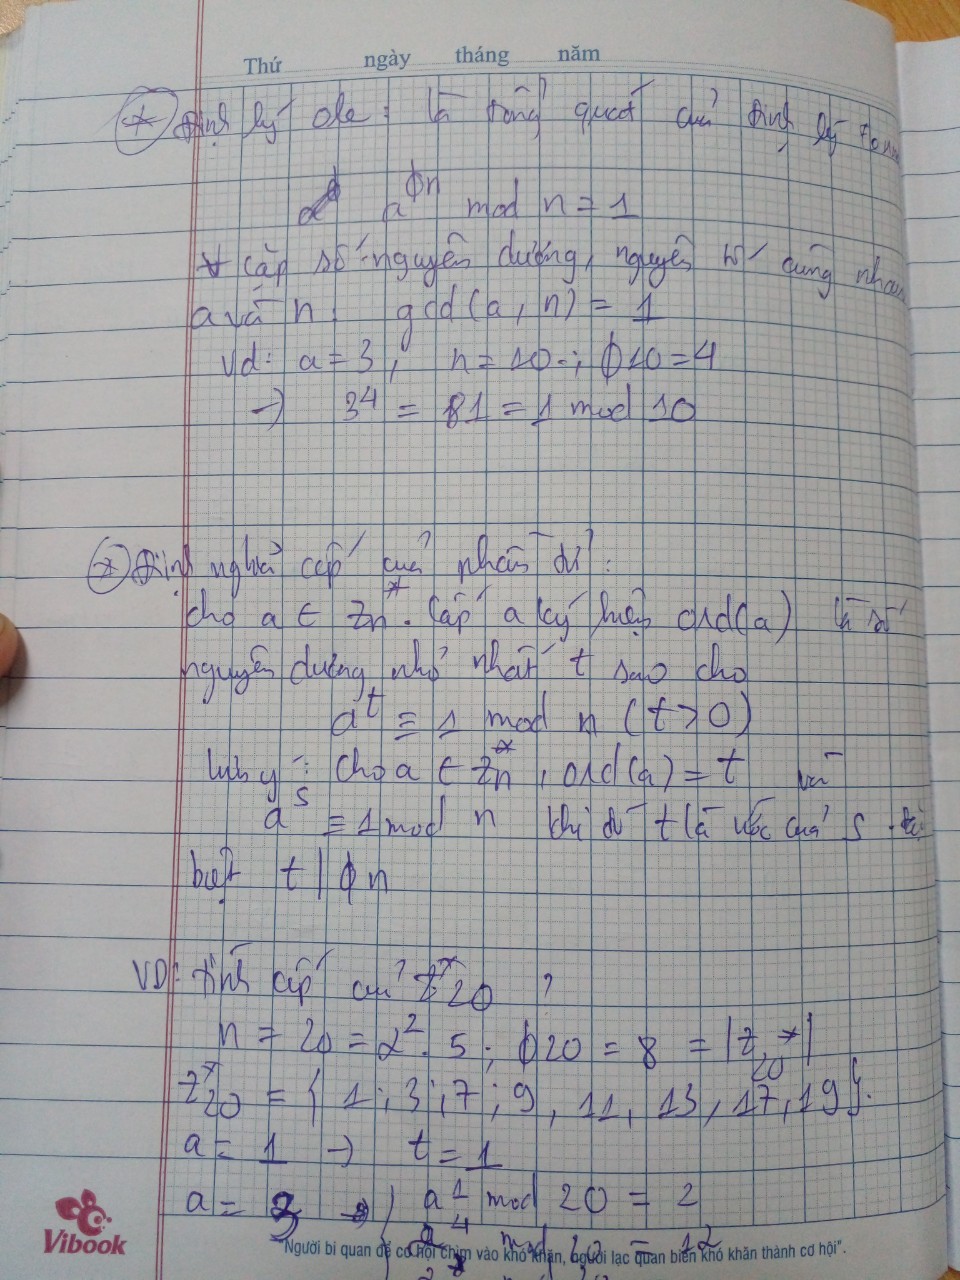 Thứ ngày tháng năm
* Định lý ole: là tổng quát của định lý
a^ϕn mod n = 1
∀ cặp số nguyên dương, nguyên tố cùng nhau
a và n: gcd(a, n) = 1
Vd: a = 3, n = 10; ϕ10 = 4
→ 3^4 = 81 = 1 mod 10
* Định nghĩa cấp của phần dư:
cho a ∈ Zn*. Cấp a ký hiệu ord(a) là số
nguyên dương nhỏ nhất t sao cho
a^t ≡ 1 mod n (t > 0)
lưu ý: cho a ∈ Zn*, ord(a) = t và
a^s ≡ 1 mod n khi đó t là ước của s.
biệt t | ϕn
VD: tính cấp của Z*20 ?
n = 20 = 2^2 . 5; ϕ20 = 8 = |Z20*|
Z*20 = { 1; 3; 7; 9, 11, 13, 17, 19}.
a = 1 → t = 1
a = 3 → a^1 mod 20 = 2
mod = 12
Vibook
"Người bi quan để cơ hội chìm vào khó khăn, người lạc quan biến khó khăn thành cơ hội".